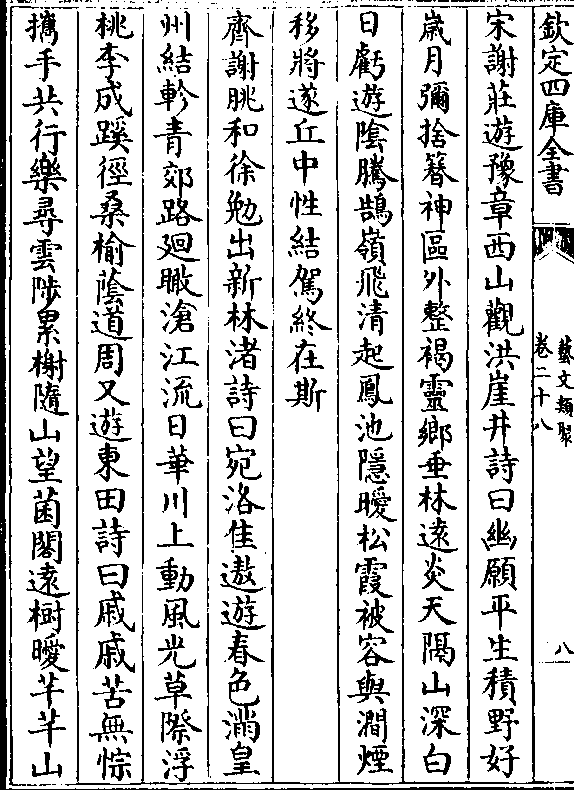 欽定四庫全書
藝文類聚
卷二十八
八
宋謝莊遊豫章西山觀洪崖井詩曰幽願平生積野好
歲月彌捨簪神區外整褐靈鄉垂林遠炎天隔山深白
日虧遊陰騰鵠嶺飛清起鳳池隱曖松霞被容與澗煙
移將遂丘中性結駕終在斯
齊謝朓和徐勉出新林渚詩曰宛洛佳遨遊春色滿皇
州結軫青郊路迴瞰滄江流日華川上動風光草際浮
桃李成蹊徑桑榆蔭道周又遊東田詩曰戚戚苦無悰
攜手共行樂尋雲陟累榭隨山望菌閣遠樹曖芊芊山